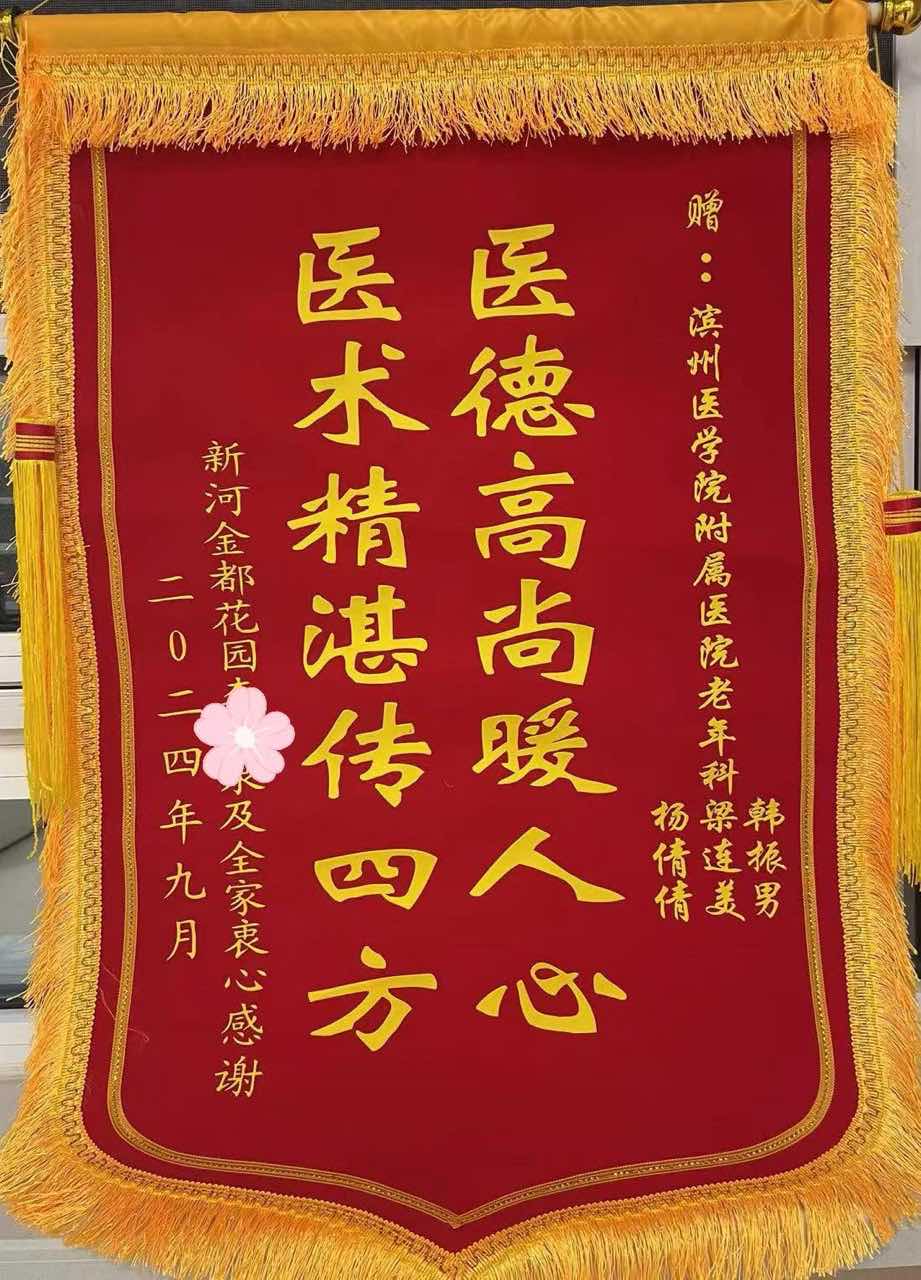 赠：滨州医学院附属医院老年科
韩振男
梁连美
杨倩倩
医德高尚暖人心
医术精湛传四方
新河金都花园
及全家衷心感谢
二0二四年九月